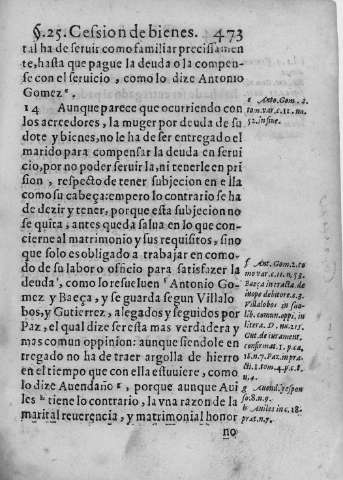 §.25. Cession de bienes. 473
tal ha de seruir como familiar precissamen
te, hasta que pague la deuda o la compen-
se con el seruicio, como lo dize Antonio
Gomez ᵉ.
14 Aunque parece que ocurriendo con
los acreedores, la muger por deuda de su
dote y bienes, no le ha de ser entregado el
marido para compensar la deuda en serui
cio, por no poder seruirla, ni tenerle en pri
sion, respecto de tener subjecion en ella
como su cabeça: empero lo contrario se ha
de dezir y tener, porque esta subjecion no
se quita, antes queda salua en lo que con-
cierne al matrimonio y sus requisitos, sino
que solo es obligado a trabajar en como-
do de su labor o oficio para satisfazer la
deuda, como lo resueluen ᶠ Antonio Go-
mez y Baeça, y se guarda segun Villalo
bos, y Gutierrez, alegados y seguidos por
Paz, el qual dize ser esta mas verdadera y
mas comun oppinion: aunque siendole en
tregado no ha de traer argolla de hierro
en el tiempo que con ella estuuiere, como
lo dize Auendaño ᵍ, porque aunque Aui
les ʰ tiene lo contrario, la vna razon de la
marital reuerencia, y matrimonial honor
no
e Anto. Gom. 2.
tom. var. c. 11. nu.
52. in fine.
f Ant. Gom. 2. to
mo var. c. 11. n. 53.
Baeça in tracta. de
inope debitore. c. 3.
Villalobos in sua
lib. commun. opp. in
litera. D. nu. 215.
Gut. de iurament.
confirmat. 1. p. ca.
16. n. 7. Paz. in pra
cti. 1. tom. 4. p. c. 1.
n. 4.
g Auend. respon
so. 8. n. 9.
h Auiles in c. 18.
præt. n. 7.